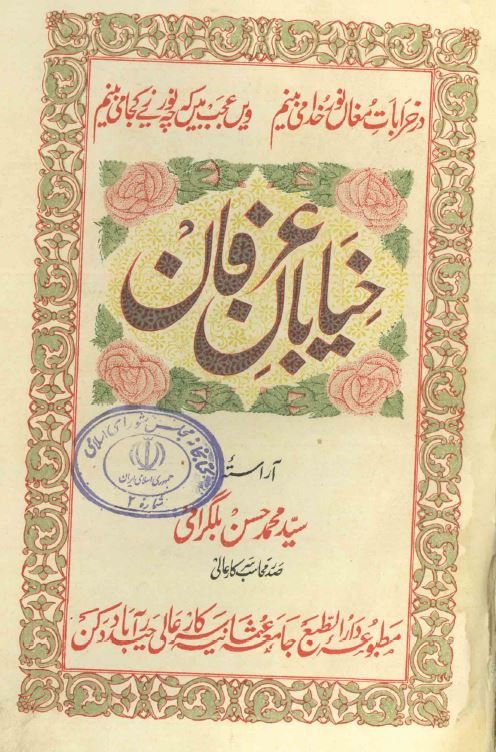 در خرابات مغاں نور خدا می بینم ویں عجب بیں کہ چہ نورے ز کجا می بینم
خیابانِ عرفان
آراستۂ
سید محمد حسن بلگرامی
صدر محاسب سرکار عالی
مطبوعہ دار الطبع جامعہ عثمانیہ سرکار عالی حیدرآباد دکن
کتابخانه مجلس شورای اسلامی
جمهوری اسلامی ایران
شماره ۲